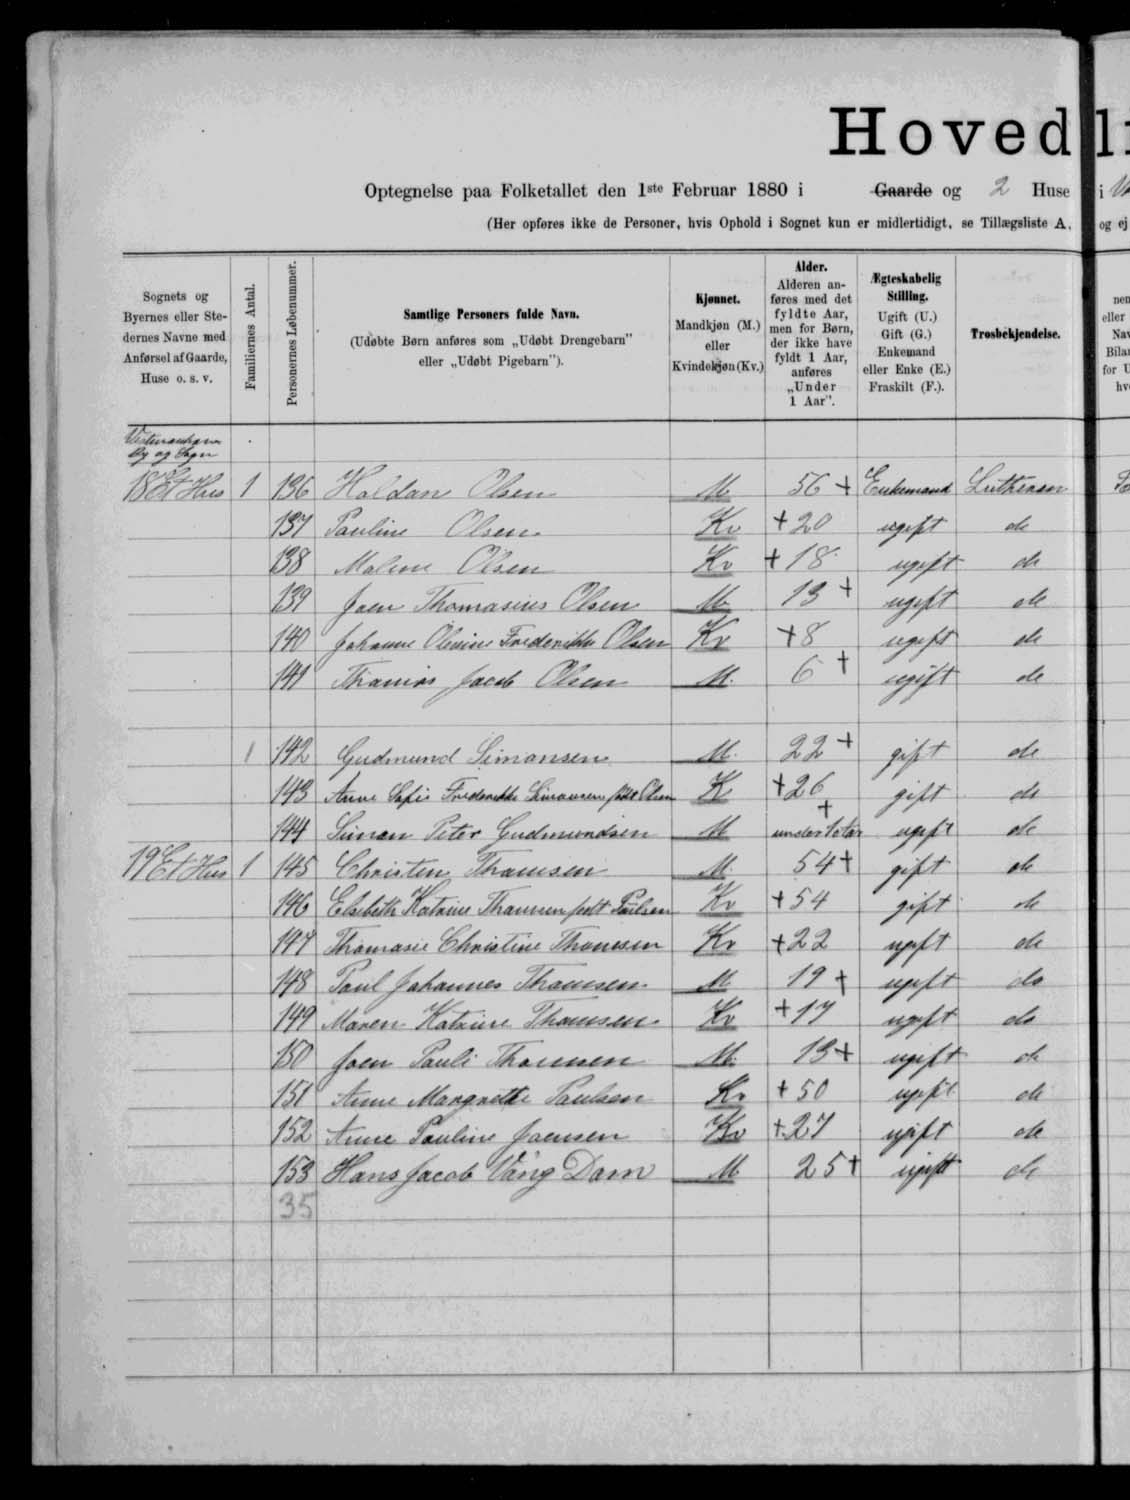 Hoved
li
Optegnelse paa Folketallet den 1ste Februar 1880 i Gaarde og 2 Huse i
(Her opføres ikke de Personer, hvis Ophold i Sognet kun er midlertidigt, se Tillægsliste A, og ej
Sognets og Byernes eller Stedernes Navne med Anførsel af Gaarde, Huse o. s. v.
Familiernes Antal.
Personernes Løbenummer.
Samtlige Personers fulde Navn.
(Udøbte Børn anføres som „Udøbt Drengebarn" eller „Udøbt Pigebarn").
Kjønnet.
Mandkjøn (M.) eller Kvindekjøn (Kv.)
Alder.
Alderen anføres med det fyldte Aar, men for Børn, der ikke have fyldt 1 Aar, anføres „Under 1 Aar".
Ægteskabelig Stilling.
Ugift (U.) Gift (G.) Enkemand eller Enke (E.) Fraskilt (F.).
Trosbekjendelse.
By og Sogn
18 Et Hus 1 136 Haldan Olsen M 56 + Enkemand Luthersk
137 Pauline Olsen Kv + 20 ugift do
138 Malene Olsen Kv + 18 ugift do
139 Joen Thomasius Olsen M 13 + ugift do
140 Johanne Olevine Frederikke Olsen Kv + 8 ugift do
141 Thomas Jacob Olsen M. 6 + ugift do
1 142 Gudmund Simonsen M. 22 + gift do
143 Anne Sofie Frederikke Simonsen født Olsen K + 26 gift do
144 Simon Peter Gudmundsen M under 1 aar + ugift do
19 Et Hus 1 145 Christen Thomsen M. 54 + gift do
146 Elsebeth Katrine Thomsen født Poulsen Kv + 54 gift do
147 Thomasie Christine Thomsen Kv + 22 ugift do
148 Poul Johannes Thomsen M 19 + ugift do
149 Maren Katrine Thomsen Kv + 17 ugift do
150 Joen Pauli Thomsen M. 13 + ugift do
151 Anne Margrethe Poulsen Kv + 50 ugift do
152 Anne Pauline Joensen Kv + 27 ugift do
153 Hans Jacob Vang Dam M 25 + ugift do
35